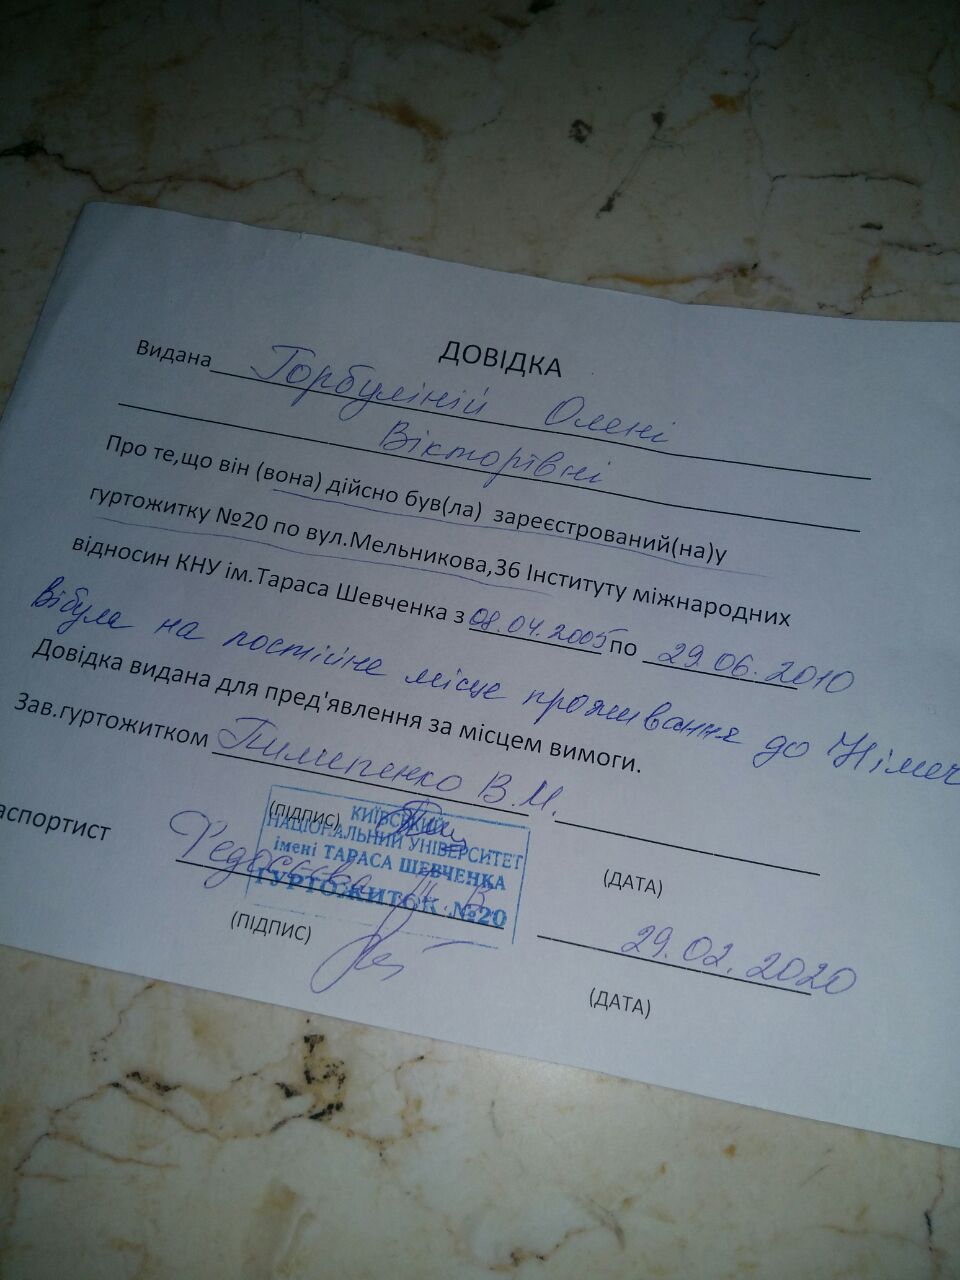 ДОВІДКА
Видана Горбуліній Олені
Вікторівні
Про те,що він (вона) дійсно був(ла) зареєстрований(на)у
гуртожитку №20 по вул.Мельникова,36 Інституту міжнародних
відносин КНУ ім.Тараса Шевченка з 08.04.2005 по 29.06.2010
вібула на постійне місце проживання до Німеч
Довідка видана для пред'явлення за місцем вимоги.
Зав.гуртожитком Пилипенко В.М.
(ПІДПИС)
(ДАТА)
КИЇВСЬКИЙ
НАЦІОНАЛЬНИЙ УНІВЕРСИТЕТ
імені ТАРАСА ШЕВЧЕНКА
ГУРТОЖИТОК №20
аспортист Федосєєва В. 29.02.2020
(ПІДПИС)
(ДАТА)